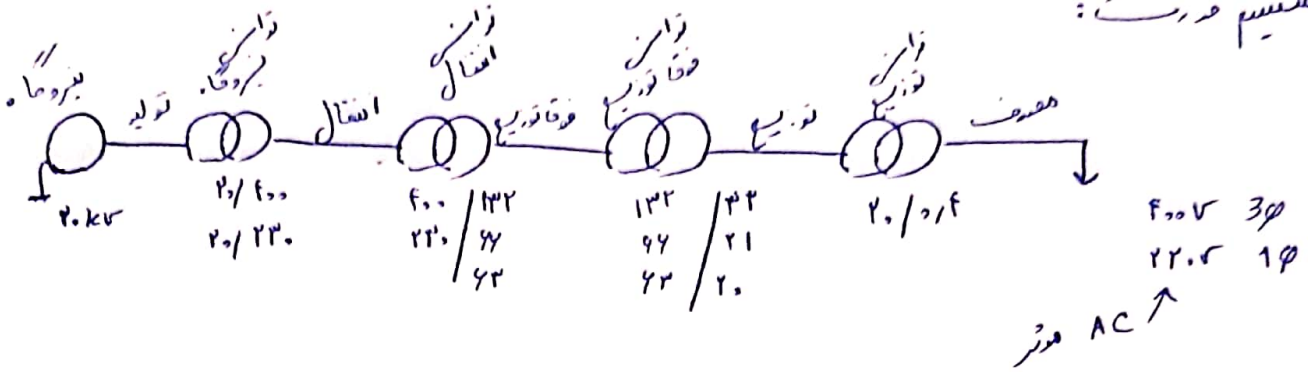 سیستم قدرت :
نیروگاه
تولید
ترانس نیروگاه
انتقال
ترانس انتقال
فوق توزیع
ترانس فوق توزیع
توزیع
ترانس توزیع
مصرف
۲۰kv
۲۰/۴۰۰
۲۰/۲۳۰
۴۰۰ / ۱۳۲
۲۳۰ / ۶۶
۶۳
۱۳۲ / ۳۳
۶۶ / ۲۱
۶۳ / ۲۰
۲۰/۰,۴
۴۰۰v 3φ
۲۲۰v 1φ
موثر AC